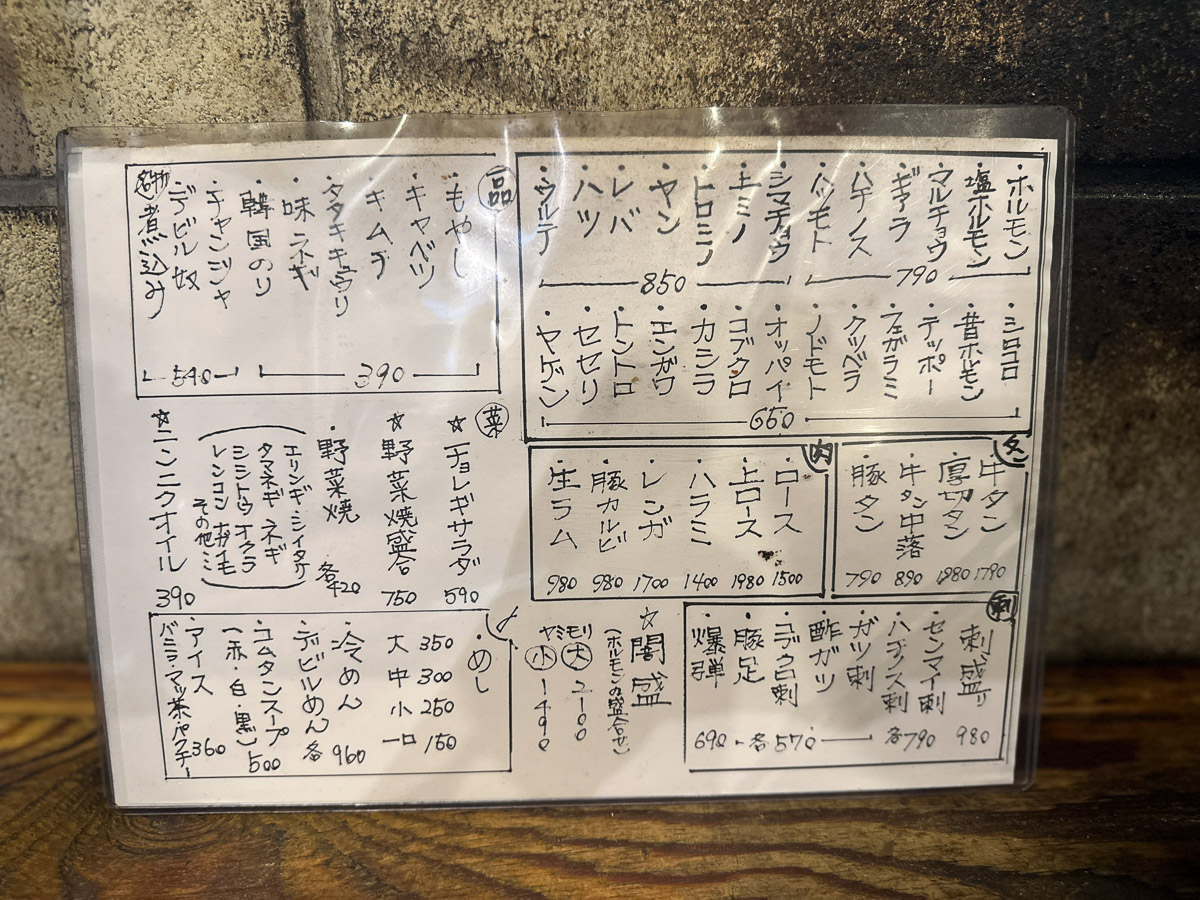 ・ホルモン
・塩ホルモン
・マルチョウ
・ギアラ
・ハチノス
・ハツモト
790
・シマチョウ
・上ミノ
・トロミノ
・ヤン
・レバ
・ハツ
・ウルテ
850
・シロコロ
・昔ホルモン
・テッポー
・フエガラミ
・クツベラ
・ノドモト
・オッパイ
・コブクロ
・カシラ
・エンガワ
・トントロ
・セセリ
・ヤゲン
650
タ
・牛タン 1790
・厚切タン 1980
・牛タン中落 890
・豚タン 790
肉
・ロース 1500
・上ロース 1980
・ハラミ 1400
・レンガ 1700
・豚カルビ 980
・生ラム 980
刺
・刺盛り 980
・センマイ刺
・ハチノス刺
各790
・ガツ刺
・酢ガツ
・コブクロ刺
・豚足
各570
・爆弾 690
☆闇盛
(ホルモンの盛合せ)
ヤミモリ
大 2100
小 1490
一品
・もやし
・キャベツ
・キムチ
・タタキキュウリ
・味ネギ
・韓国のり
390
・チャンジャ
・デビル奴
名物 煮込み
540
菜
☆チョレギサラダ 590
☆野菜焼盛合 750
・野菜焼 各420
(エリンギ・シイタケ
タマネギ ネギ
シシトウ オクラ
レンコン ナガイモ
その他ミ)
☆ニンニクオイル 390
〆
・めし
大 350
中 300
小 250
一口 150
・冷めん
・デビルめん
各960
・コムタンスープ
(赤・白・黒) 500
・アイス 360
バニラ・マッ茶・パクチー